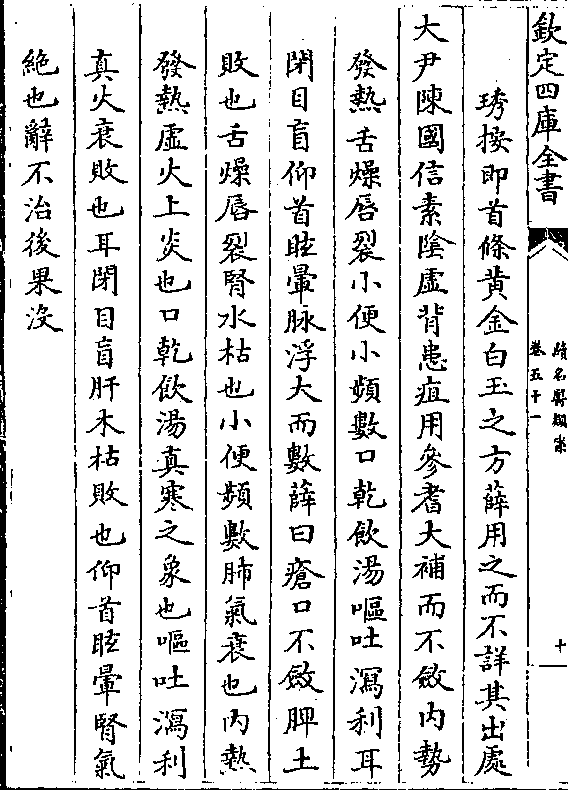 欽定四庫全書
續名醫類案
卷五十一
十
琇按即首條黄金白玉之方薛用之而不詳其出處
大尹陳國信素陰虛背患疽用參耆大補而不斂内勢
發熱舌燥唇裂小便小頻數口乾飲湯嘔吐瀉利耳
閉目盲仰首眩暈脉浮大而數薛曰瘡口不斂脾土
敗也舌燥唇裂腎水枯也小便頻數肺氣衰也内熱
發熱虛火上炎也口乾飲湯真寒之象也嘔吐瀉利
真火衰敗也耳閉目盲肝木枯敗也仰首眩暈腎氣
絶也辭不治後果没